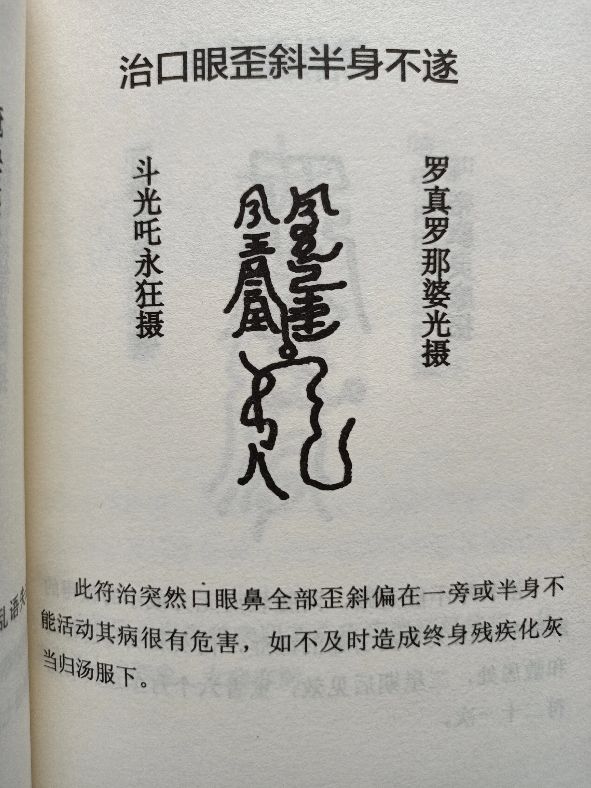 治口眼歪斜半身不遂
罗真罗那婆光摄
斗光吒永狂摄
此符治突然口眼鼻全部歪斜偏在一旁或半身不
能活动其病很有危害，如不及时造成终身残疾化灰
当归汤服下。